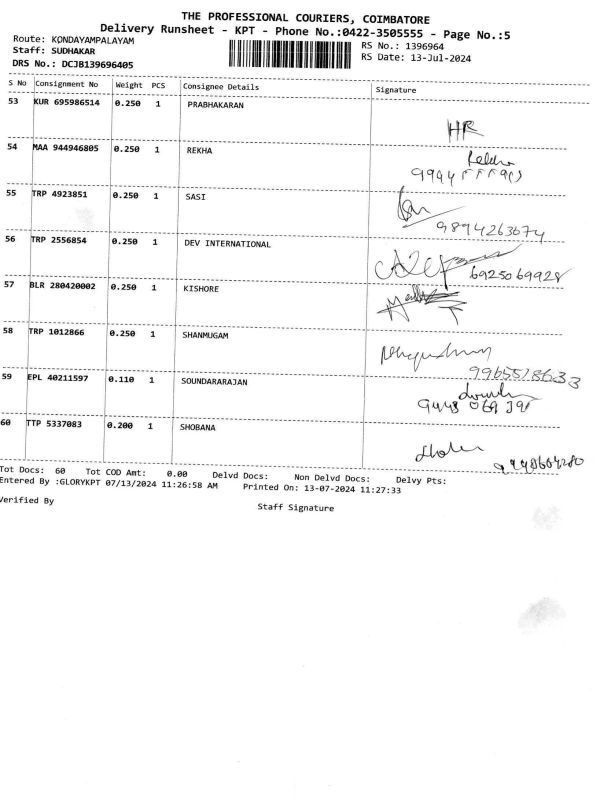 THE PROFESSIONAL COURIERS, COIMBATORE
Delivery Runsheet - KPT - Phone No.:0422-3505555 - Page No.:5
Route: KONDAYAMPALAYAM
RS No.: 1396964
Staff: SUDHAKAR
RS Date: 13-Jul-2024
DRS No.: DCJB139696405
S No Consignment No Weight PCS Consignee Details Signature
53 KUR 695986514 0.250 1 PRABHAKARAN
HR
54 MAA 944946805 0.250 1 REKHA
55 TRP 4923851 0.250 1 SASI
9894263674
56 TRP 2556854 0.250 1 DEV INTERNATIONAL
6925069928
57 BLR 280420002 0.250 1 KISHORE
58 TRP 1012866 0.250 1 SHANMUGAM
9965518633
59 EPL 40211597 0.110 1 SOUNDARARAJAN
9443 069 391
60 TTP 5337083 0.200 1 SHOBANA
Tot Docs: 60 Tot COD Amt: 0.00 Delvd Docs: Non Delvd Docs: Delvy Pts:
Entered By :GLORYKPT 07/13/2024 11:26:58 AM Printed On: 13-07-2024 11:27:33
Verified By
Staff Signature